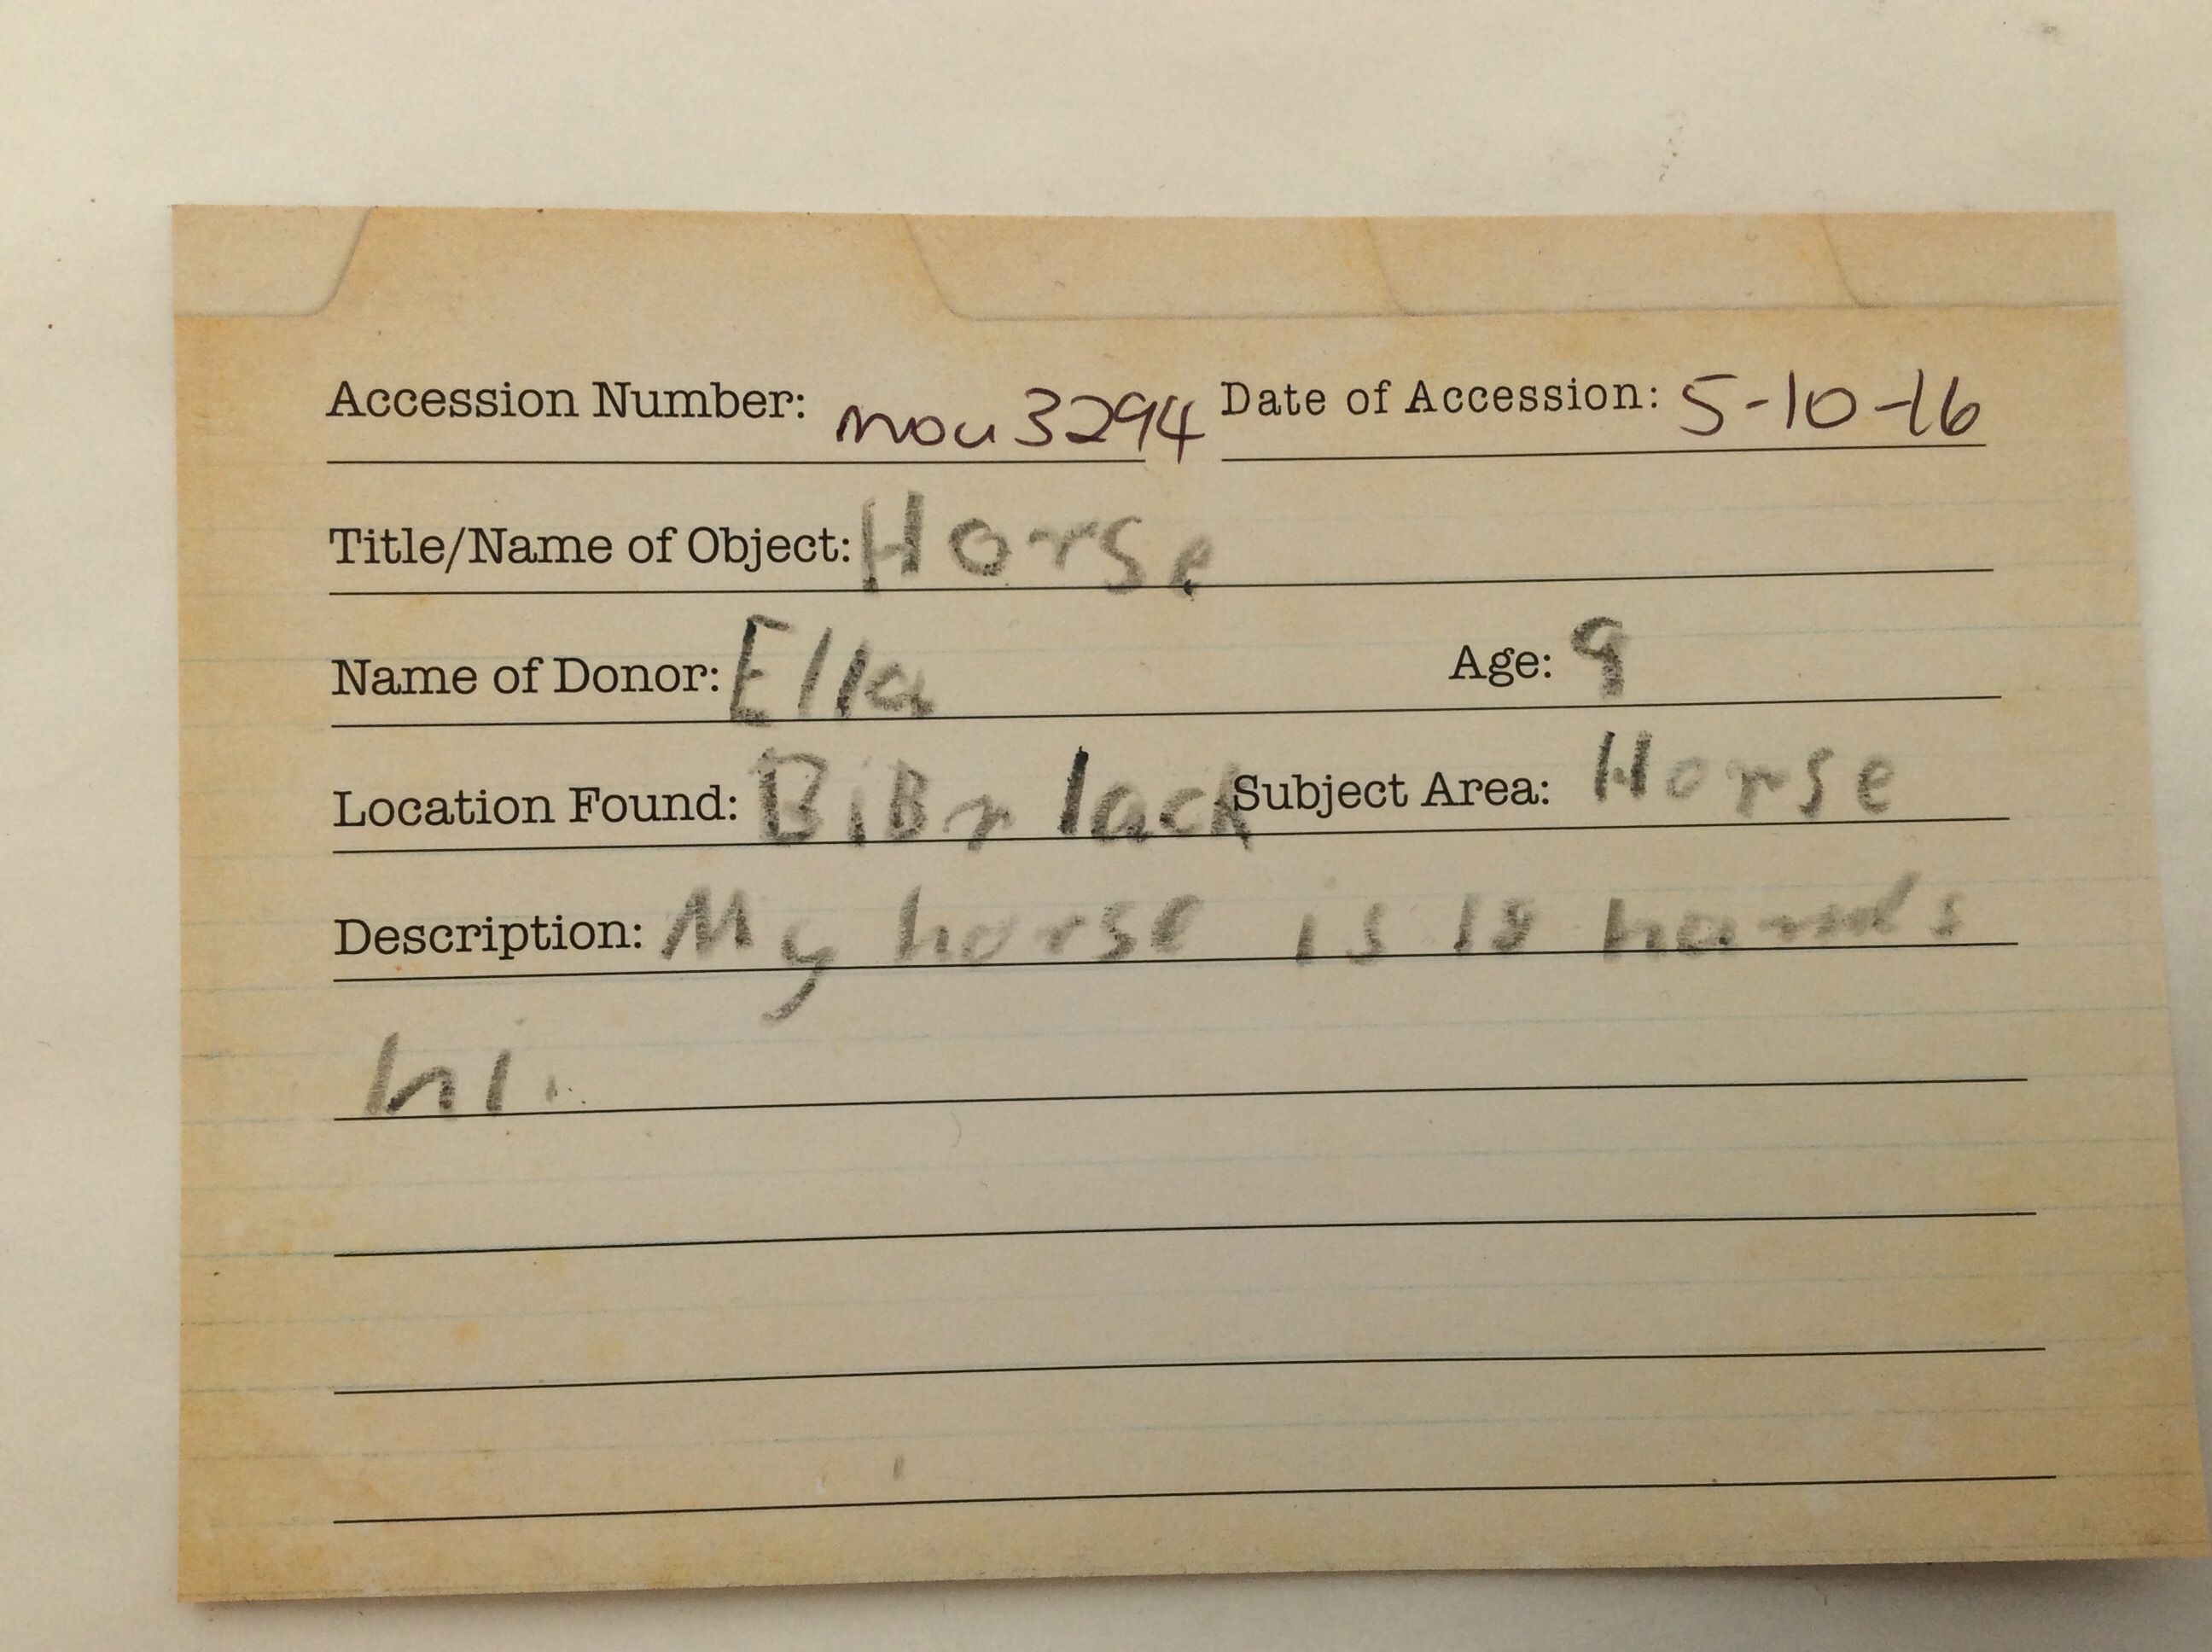 Accession Number: mou3294 Date of Accession: 5-10-16
Title/Name of Object: Horse
Name of Donor: Ella Age: 9
Location Found: BiBr lack Subject Area: Horse
Description: My horse is 18 hands
hi.